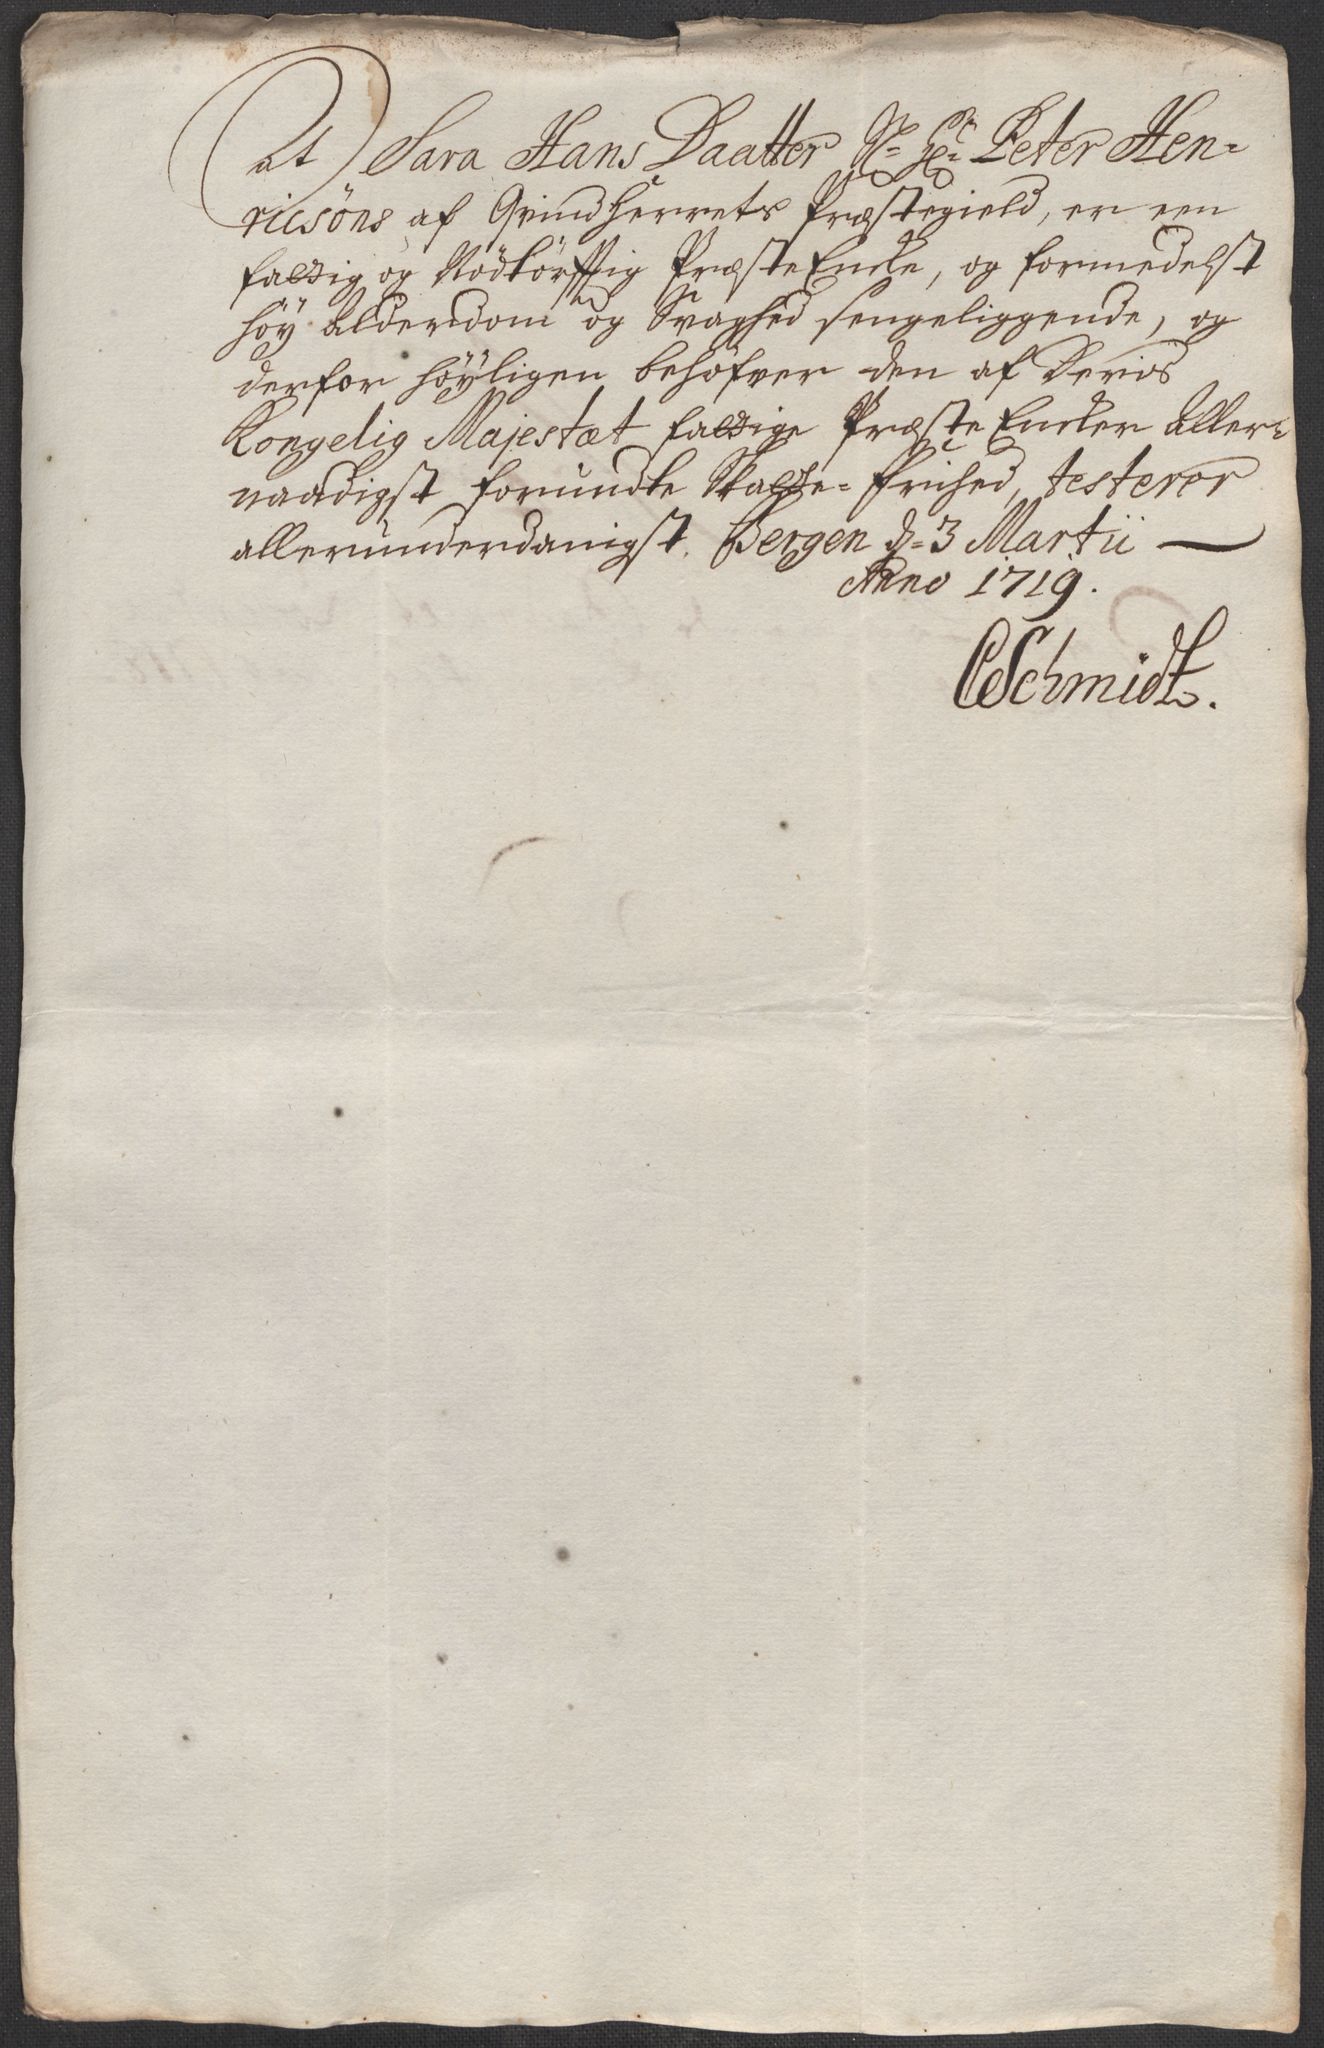 At Sara Hans Daatter Sl: Hr: Peter Hen-
ricsöns af Qvindherrets Præstegield, er een
fattig og Nödtörfftig Præste Encke, og formedelst
höy Alderdom og Svaghed sengeliggende, og
derfor höyligen behöfver den af Deris
Kongelig Majestæt fattige Præste Encker aller-
naadigst forundte Skatte-frihed, testerer
allerunderdanigst. Bergen d: 3 Martii
Anno 1719.
CSchmidt.